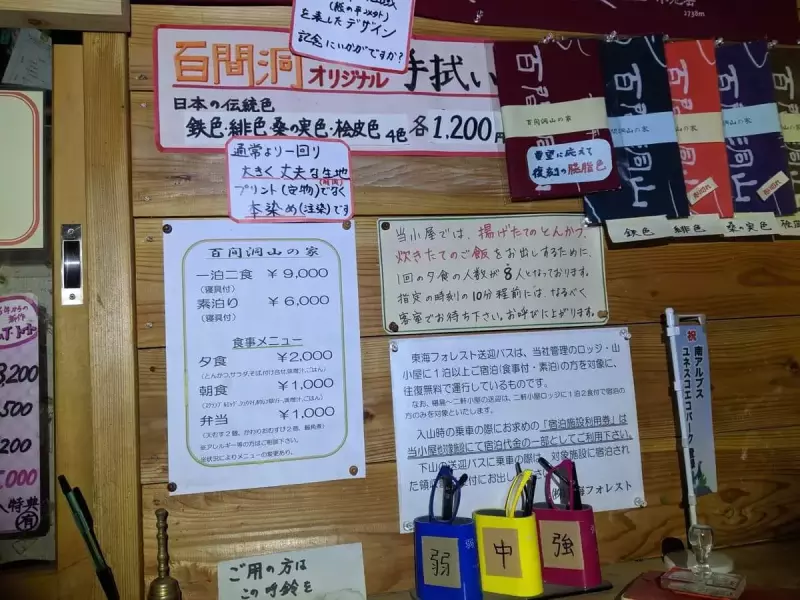 (阪の手ンメタト)
を表したデザイン
記念にいかがですか?
百間洞 オリジナル 手拭い
日本の伝統色
鉄色・緋色・桑の実色・桧皮色 4色 各1,200円
通常より一回り
大きく丈夫な生地
プリント(定物)でなく
本染め(注染)です
百間洞山の家
要望に応えて
復刻の臙脂色
鉄色
緋色
桑の実色
売切れ
売切れ
2738m
百間洞山の家
一泊二食 ¥9,000
(寝具付)
素泊り ¥6,000
(寝具付)
食事メニュー
夕食 ¥2,000
朝食 ¥1,000
弁当 ¥1,000
※アレルギー等の方はご相談下さい。
※状況によりメニューの変更あり。
当小屋では、揚げたてのとんかつ、
炊きたてのご飯をお出しするために、
1回の夕食の人数が8人となっております。
指定の時刻の10分程前には、なるべく
客室でお待ち下さい。お呼びに上がります。
東海フォレスト送迎バスは、当社管理のロッジ・山
小屋に1泊以上ご宿泊(食事付・素泊)の方を対象に、
往復無料で運行しているものです。
なお、椹島〜二軒小屋の送迎は、二軒小屋ロッジに1泊2食付で宿泊の
方のみを対象といたします。
入山時の乗車の際にお求めの「宿泊施設利用券」は
当小屋他施設にて宿泊代金の一部としてご利用下さい。
下山の送迎バスに乗車の際は、対象施設に宿泊され
た領収
付にお出し
海フォレスト
祝
南アルプス
ユネスコエコパーク
弱
中
強
ご用の方は
この呼鈴を